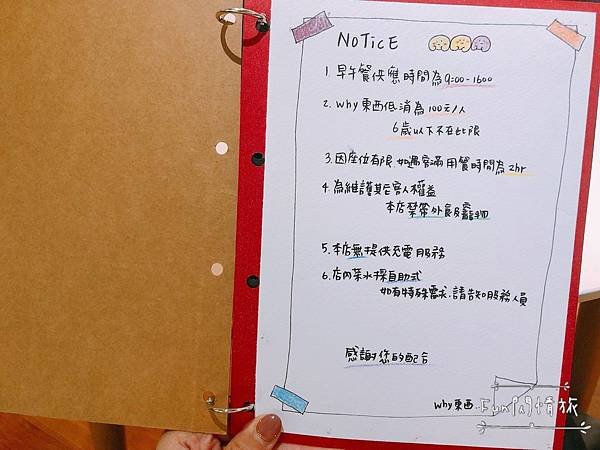 NOTICE
1. 早午餐供應時間為9:00-1600
2. why東西低消為100元/人
6歲以下不在此限
3.因座位有限 如遇客滿用餐時間為2hr
4.為維護其它客人權益
本店禁帶外食及寵物
5.本店無提供充電服務
6.店內茶水採自助式
如有特殊需求,請告知服務人員
感謝您的配合
why東西
Fun閃情旅